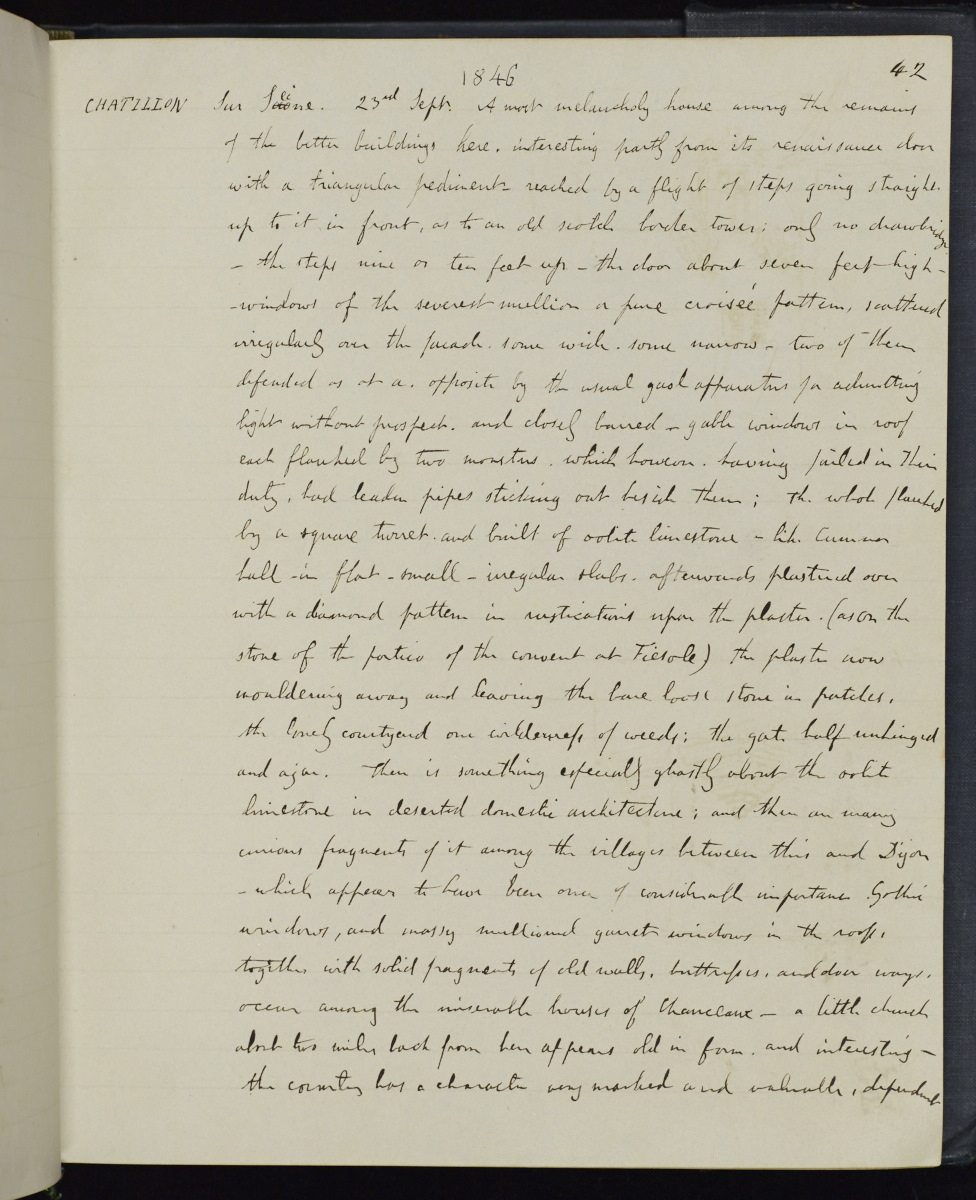 1846
42
CHATILLON Sur Seine. 23rd Sept. A most melancholy house among the remains
of the better buildings here. interesting partly from its renaissance door
with a triangular pediment reached by a flight of steps going straight
up to it in front, as to an old scotch border tower; only no drawbridge
- the steps nine or ten feet up - the door about seven feet high -
-windows of the severest mullion or pure croiseé pattern, scattered
irregularly over the facade. some wide. some narrow - two of them
defended as at a. opposite by the usual gaol apparatus for admitting
light without prospect. and closely barred - gable windows in roof
each flanked by two monsters. which however. having failed in their
duty, had leaden pipes sticking out beside them; the whole flanked
by a square turret. and built of oolite limestone - like Cumnor
hall - in flat - small - irregular slabs. afterwards plastered over
with a diamond pattern in rustications upon the plaster. (as on the
stone of the portico of the convent at Fiesole) the plaster now
mouldering away and leaving the bare loose stone in patches.
the lonely courtyard one wilderness of weeds; the gate half unhinged
and ajar. There is something especially ghastly about the oolite
limestone in deserted domestic architecture; and there are many
curious fragments of it among the villages between this and Dijon
- which appears to have been once of considerable importance. Gothic
windows, and massy mullioned garret windows in the roofs.
together with solid fragments of old walls. buttresses. and door ways.
occur among the miserable houses of Chanceaux - a little church
about two miles back from here appears old in form. and interesting -
the country has a character very marked and valuable, dependent